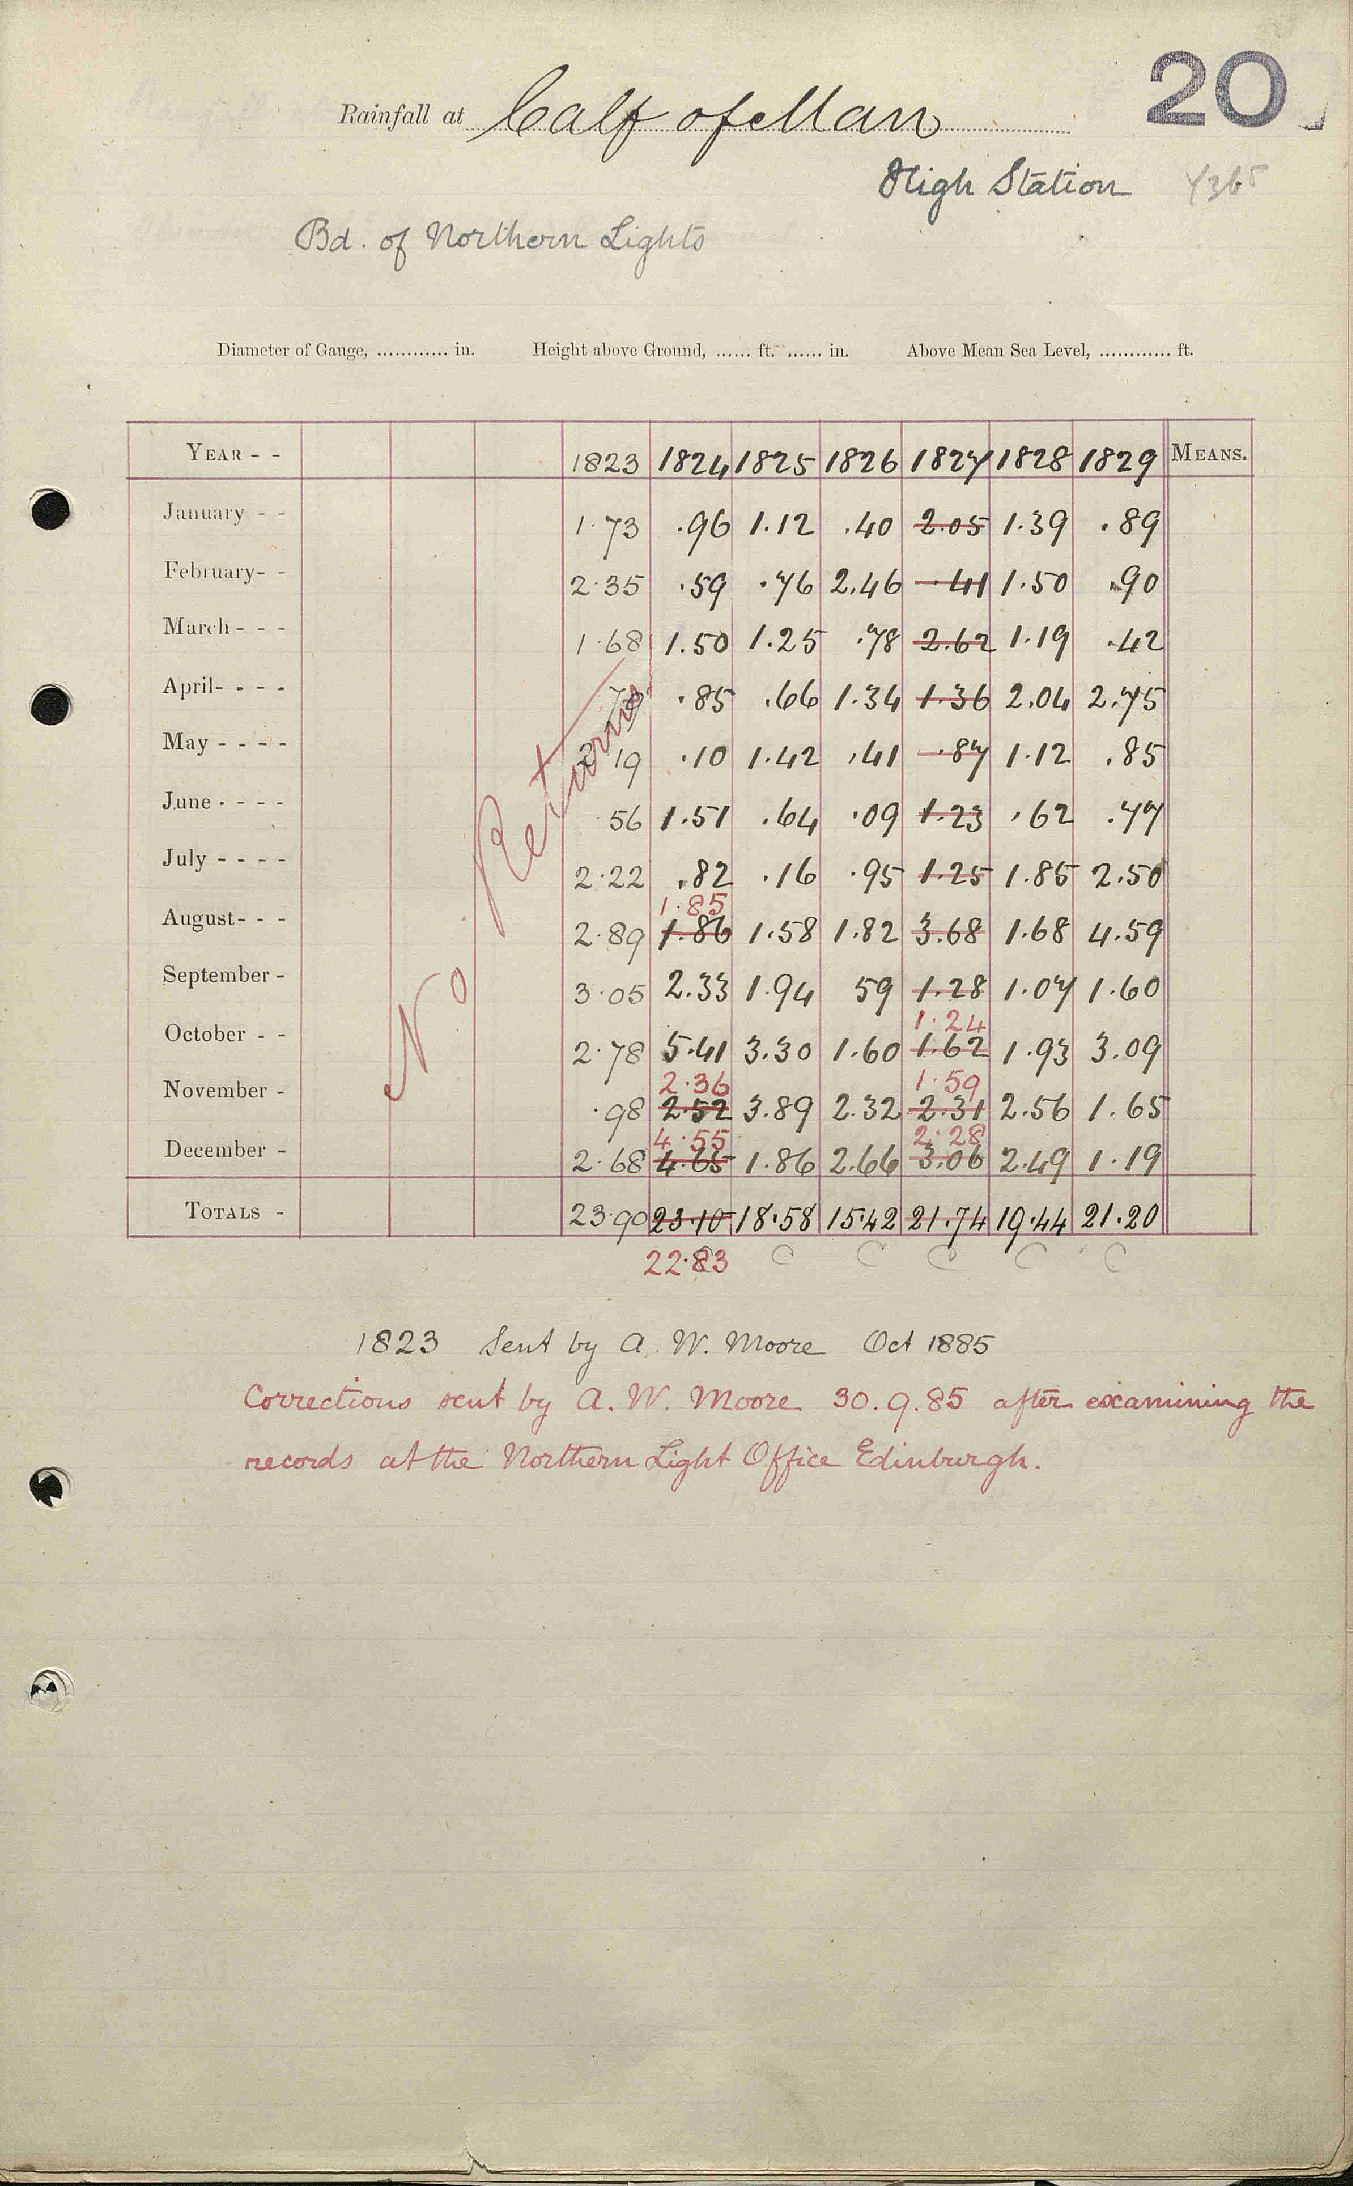 20
Rainfall at Calf of Man
High Station
Bd. of Northern Lights
Diameter of Gauge, ............ in. Height above Ground, ...... ft. ...... in. Above Mean Sea Level, ............ ft.
YEAR - - 1823 1824 1825 1826 1827 1828 1829 MEANS.
January - - 1.73 .96 1.12 .40 2.05 1.39 .89
February- - 2.35 .59 .76 2.46 .41 1.50 .90
March - - - 1.68 1.50 1.25 .78 2.62 1.19 .42
April- - - - .85 .66 1.34 1.36 2.04 2.75
May - - - - 19 .10 1.42 .41 .87 1.12 .85
June - - - - .56 1.51 .64 .09 1.23 .62 .77
July - - - - 2.22 .82 .16 .95 1.25 1.85 2.50
1.85
August- - - 2.89 1.86 1.58 1.82 3.68 1.68 4.59
September - 3.05 2.33 1.94 59 1.28 1.07 1.60
1.24
October - - 2.78 5.41 3.30 1.60 1.62 1.93 3.09
2.36 1.59
November - .98 2.52 3.89 2.32 2.31 2.56 1.65
4.55 2.28
December - 2.68 4.65 1.86 2.66 3.06 2.49 1.19
TOTALS - 23.90 23.10 18.58 15.42 21.74 19.44 21.20
22.83
No Returns
1823 Sent by A. W. Moore Oct 1885
Corrections sent by A. W. Moore 30.9.85 after examining the
records at the Northern Light Office Edinburgh.